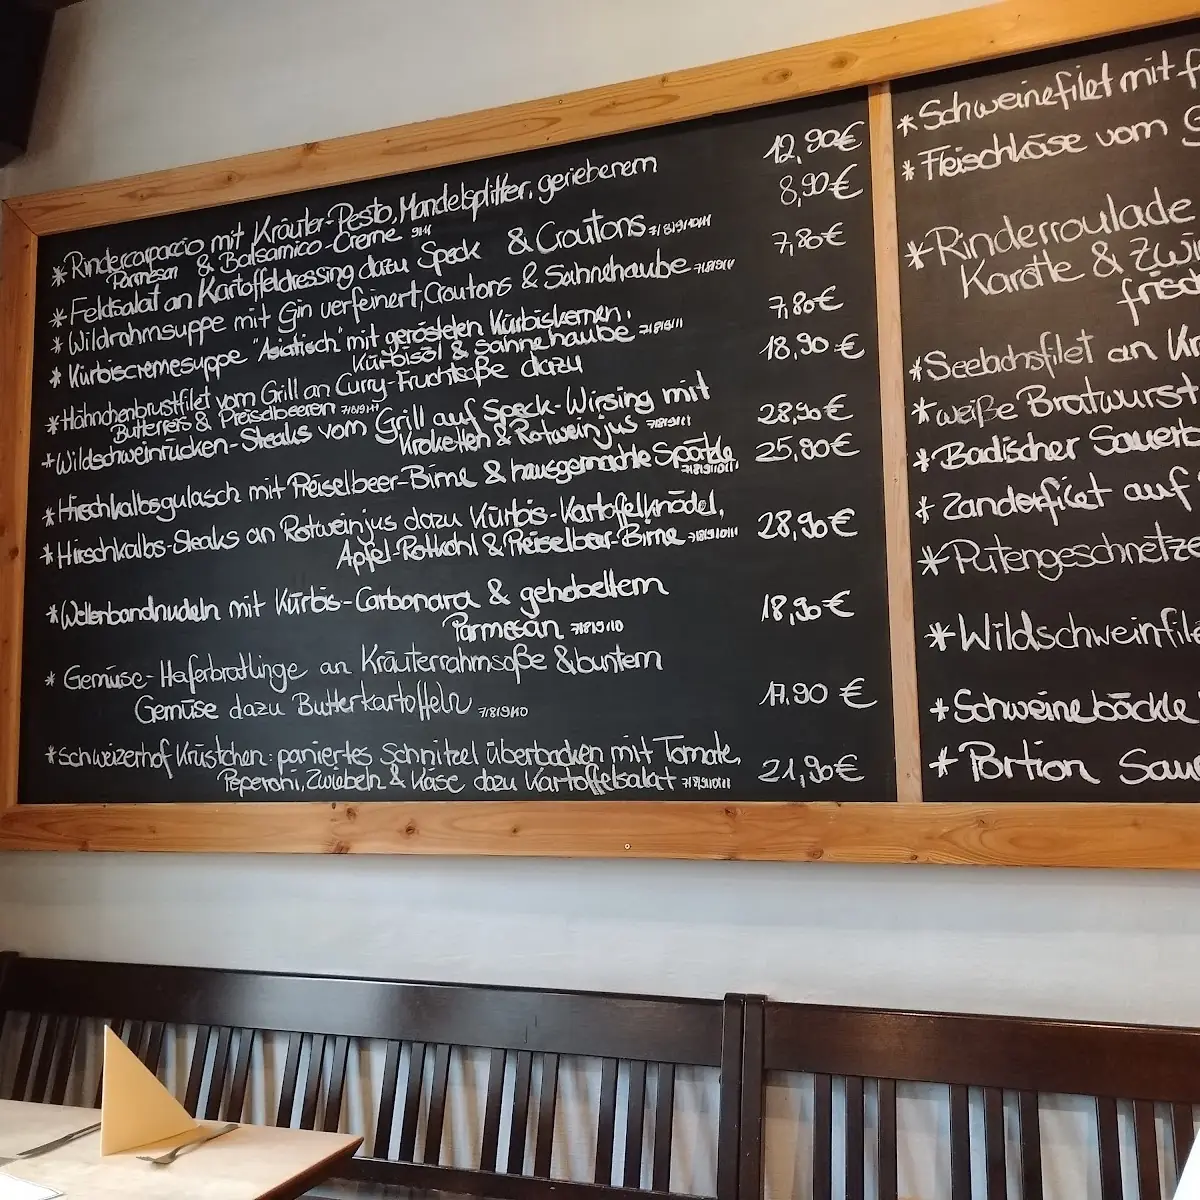 *Rindercarpaccio mit Kräuter-Pesto, Mandelsplitter, geriebenem 12,90€
Parmesan & Balsamico-Creme
*Feldsalat an Kartoffeldressing dazu Speck & Croutons 8,90€
*Wildrahmsuppe mit Gin verfeinert, Croutons & Sahnehaube 7,80€
*Kürbiscremesuppe "Asiatisch" mit gerösteten Kürbiskernen, 7,80€
Kürbisöl & Sahnehaube
*Hähnchenbrustfilet vom Grill an Curry-Fruchtsoße dazu 18,90€
Butterreis & Preiselbeeren
*Wildschweinrücken-Steaks vom Grill auf Speck-Wirsing mit 28,90€
Kroketten & Rotweinjus
*Hirschkalbsgulasch mit Preiselbeer-Birne & hausgemachte Spätzle 25,90€
*Hirschkalbs-Steaks an Rotweinjus dazu Kürbis-Kartoffelknödel, 28,90€
Apfel-Rotkohl & Preiselbeer-Birne
*Wellenbandnudeln mit Kürbis-Carbonara & gehobeltem 18,90€
Parmesan 7/8/9/10
* Gemüse-Haferbratlinge an Kräuterrahmsoße & buntem
Gemüse dazu Butterkartoffeln 7/8/9/10 17,90 €
*Schweizerhof Krüstchen: paniertes Schnitzel überbacken mit Tomate,
Peperoni, Zwiebeln & Käse dazu Kartoffelsalat 21,90€
*Schweinefilet mit
*Fleischkäse vom
*Rinderroulade
Karotte &
*Seelachsfilet an
*weiße Bratwurst
*Badischer
*Zanderfilet auf
*Putengeschnetze
*Wildschweinfil
*Schweinebäckle
*Portion